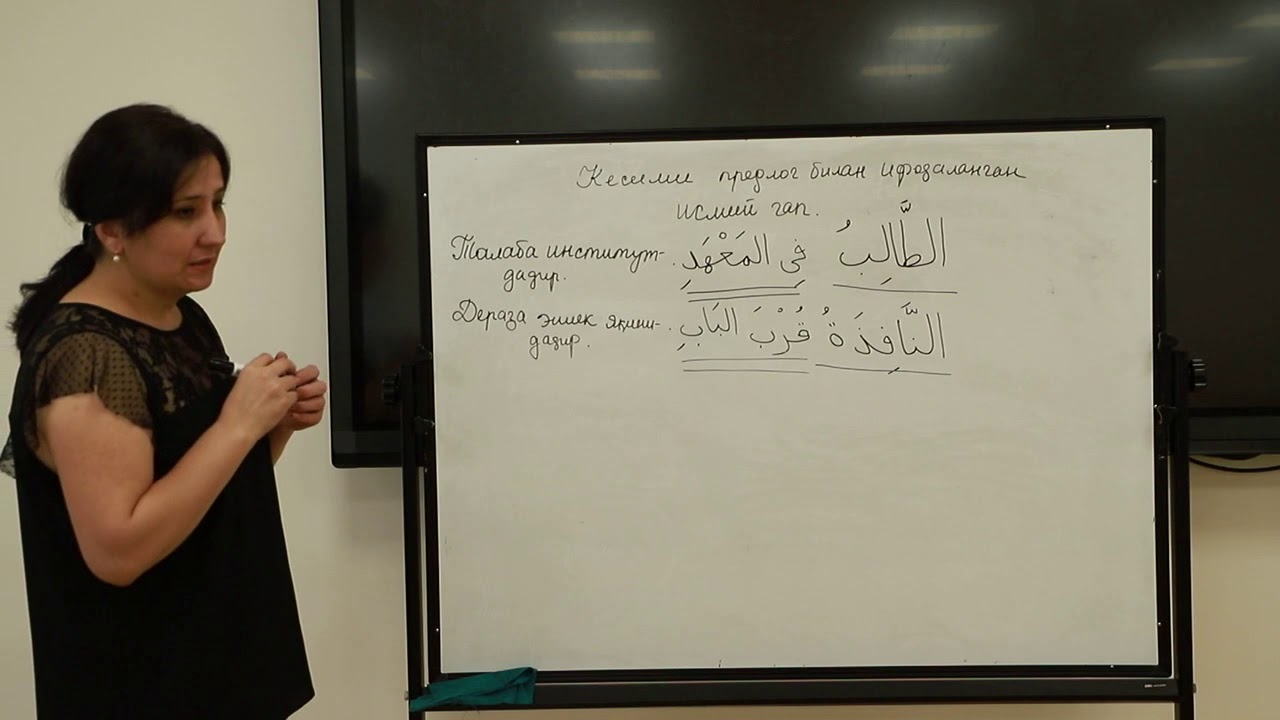 Кесими предлог билан ифодаланган
исмий гап.
الطَّالِبُ فِى المَعْهَدِ. Талаба институт-
дадир.
النَّافِذَةُ قُرْبَ البَابِ. Дераза эшик яқини-
дадир.